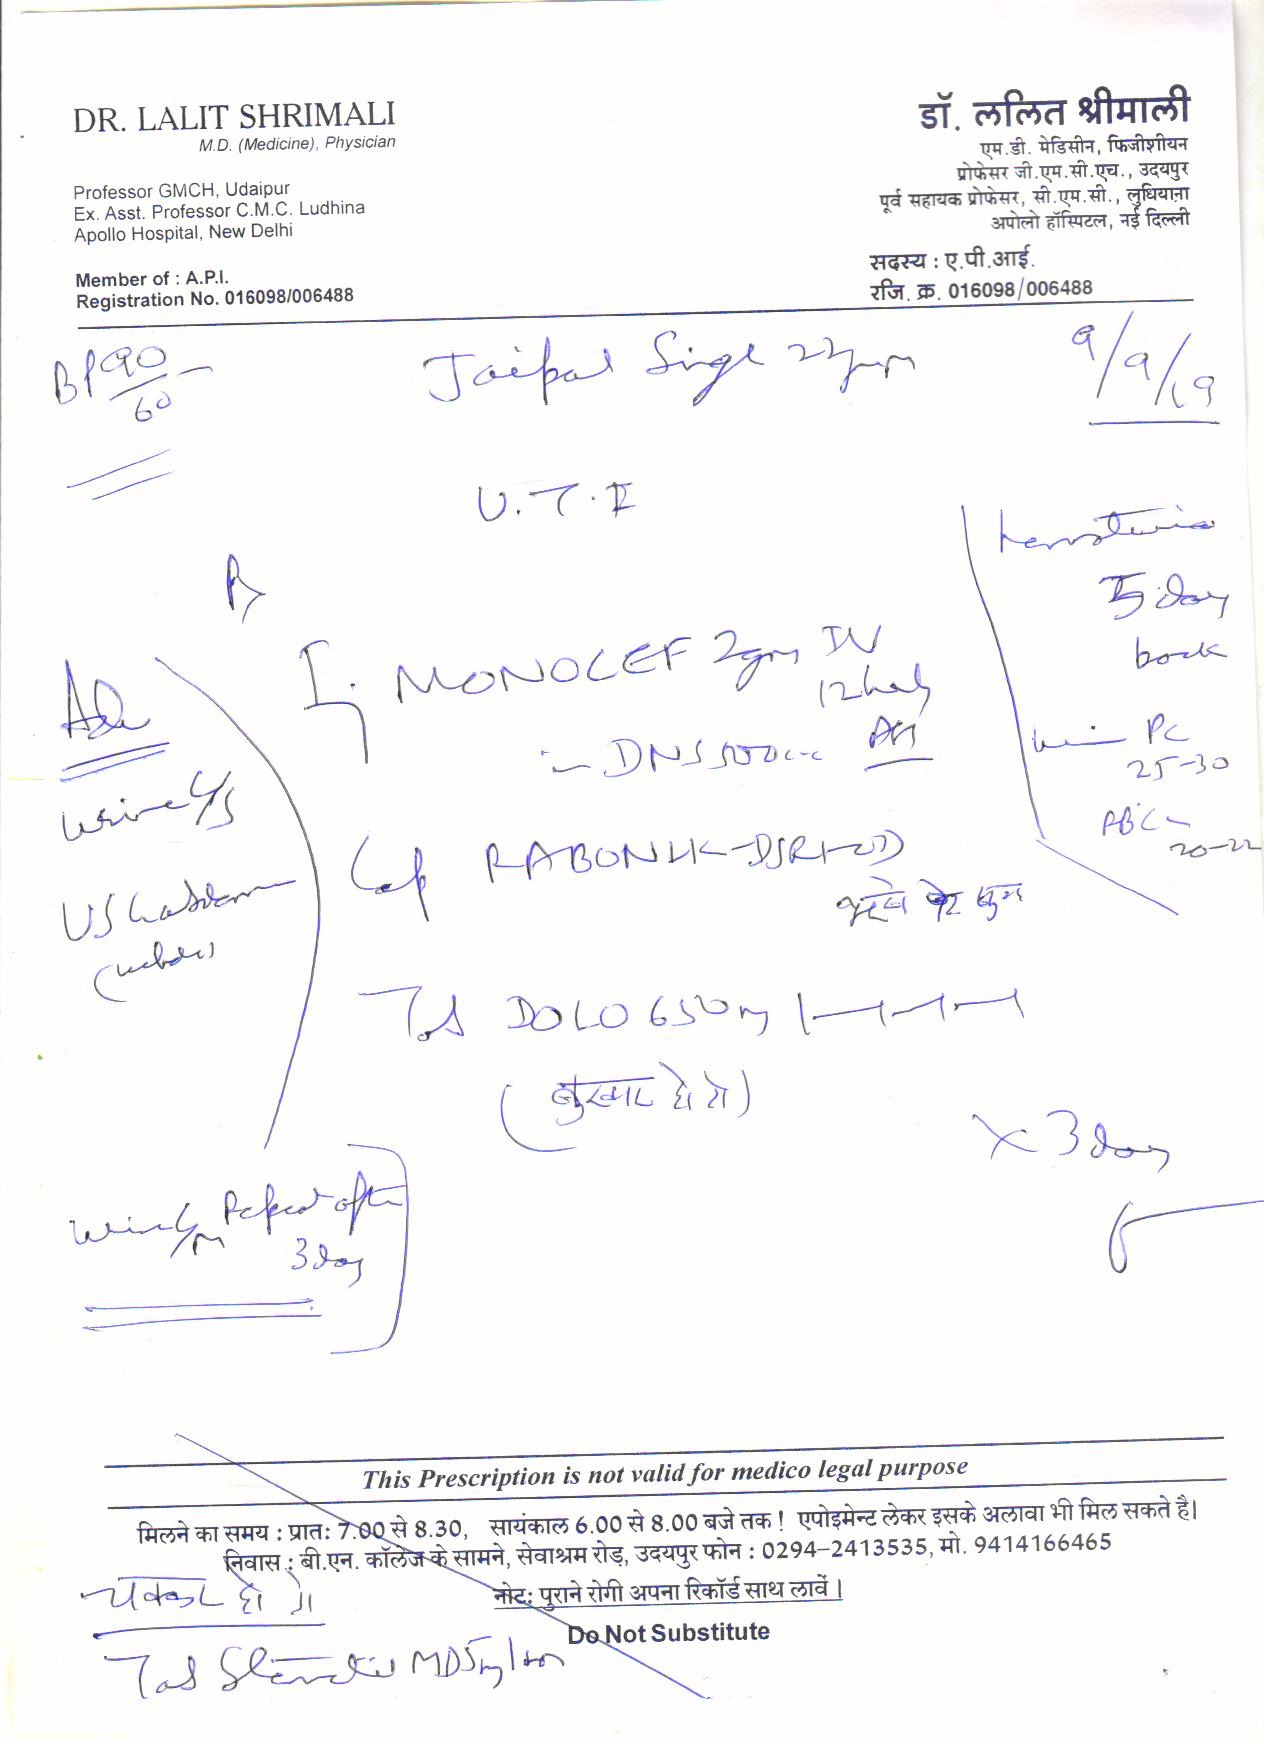 DR. LALIT SHRIMALI
M.D. (Medicine), Physician
Professor GMCH, Udaipur
Ex. Asst. Professor C.M.C. Ludhina
Apollo Hospital, New Delhi
Member of : A.P.I.
Registration No. 016098/006488
डॉ. ललित श्रीमाली
एम.डी. मेडिसीन, फिजीशीयन
प्रोफेसर जी.एम.सी.एच., उदयपुर
पूर्व सहायक प्रोफेसर, सी.एम.सी., लुधियाना
अपोलो हॉस्पिटल, नई दिल्ली
सदस्य : ए.पी.आई.
रजि. क्र. 016098/006488
BP 90/60
Jaipal Singh
9/9/19
U.T.I
5 day
back
PC
25-30
20-22
Inj MONOCEF 2gm IV
in DNS 500cc
Adv
Urine C/S
Cap RABONIK-DSR 1-OD
Tab DOLO 650mg 1-1-1
(बुखार हो तो)
x 3 day
Urine R/M Repeat after
3 day
This Prescription is not valid for medico legal purpose
मिलने का समय : प्रातः 7.00 से 8.30, सायंकाल 6.00 से 8.00 बजे तक ! एपोइमेन्ट लेकर इसके अलावा भी मिल सकते है।
निवास : बी.एन. कॉलेज के सामने, सेवाश्रम रोड़, उदयपुर फोन : 0294-2413535, मो. 9414166465
नोट: पुराने रोगी अपना रिकॉर्ड साथ लावें।
Do Not Substitute
चक्कर हो तो
Tab MD 5mg